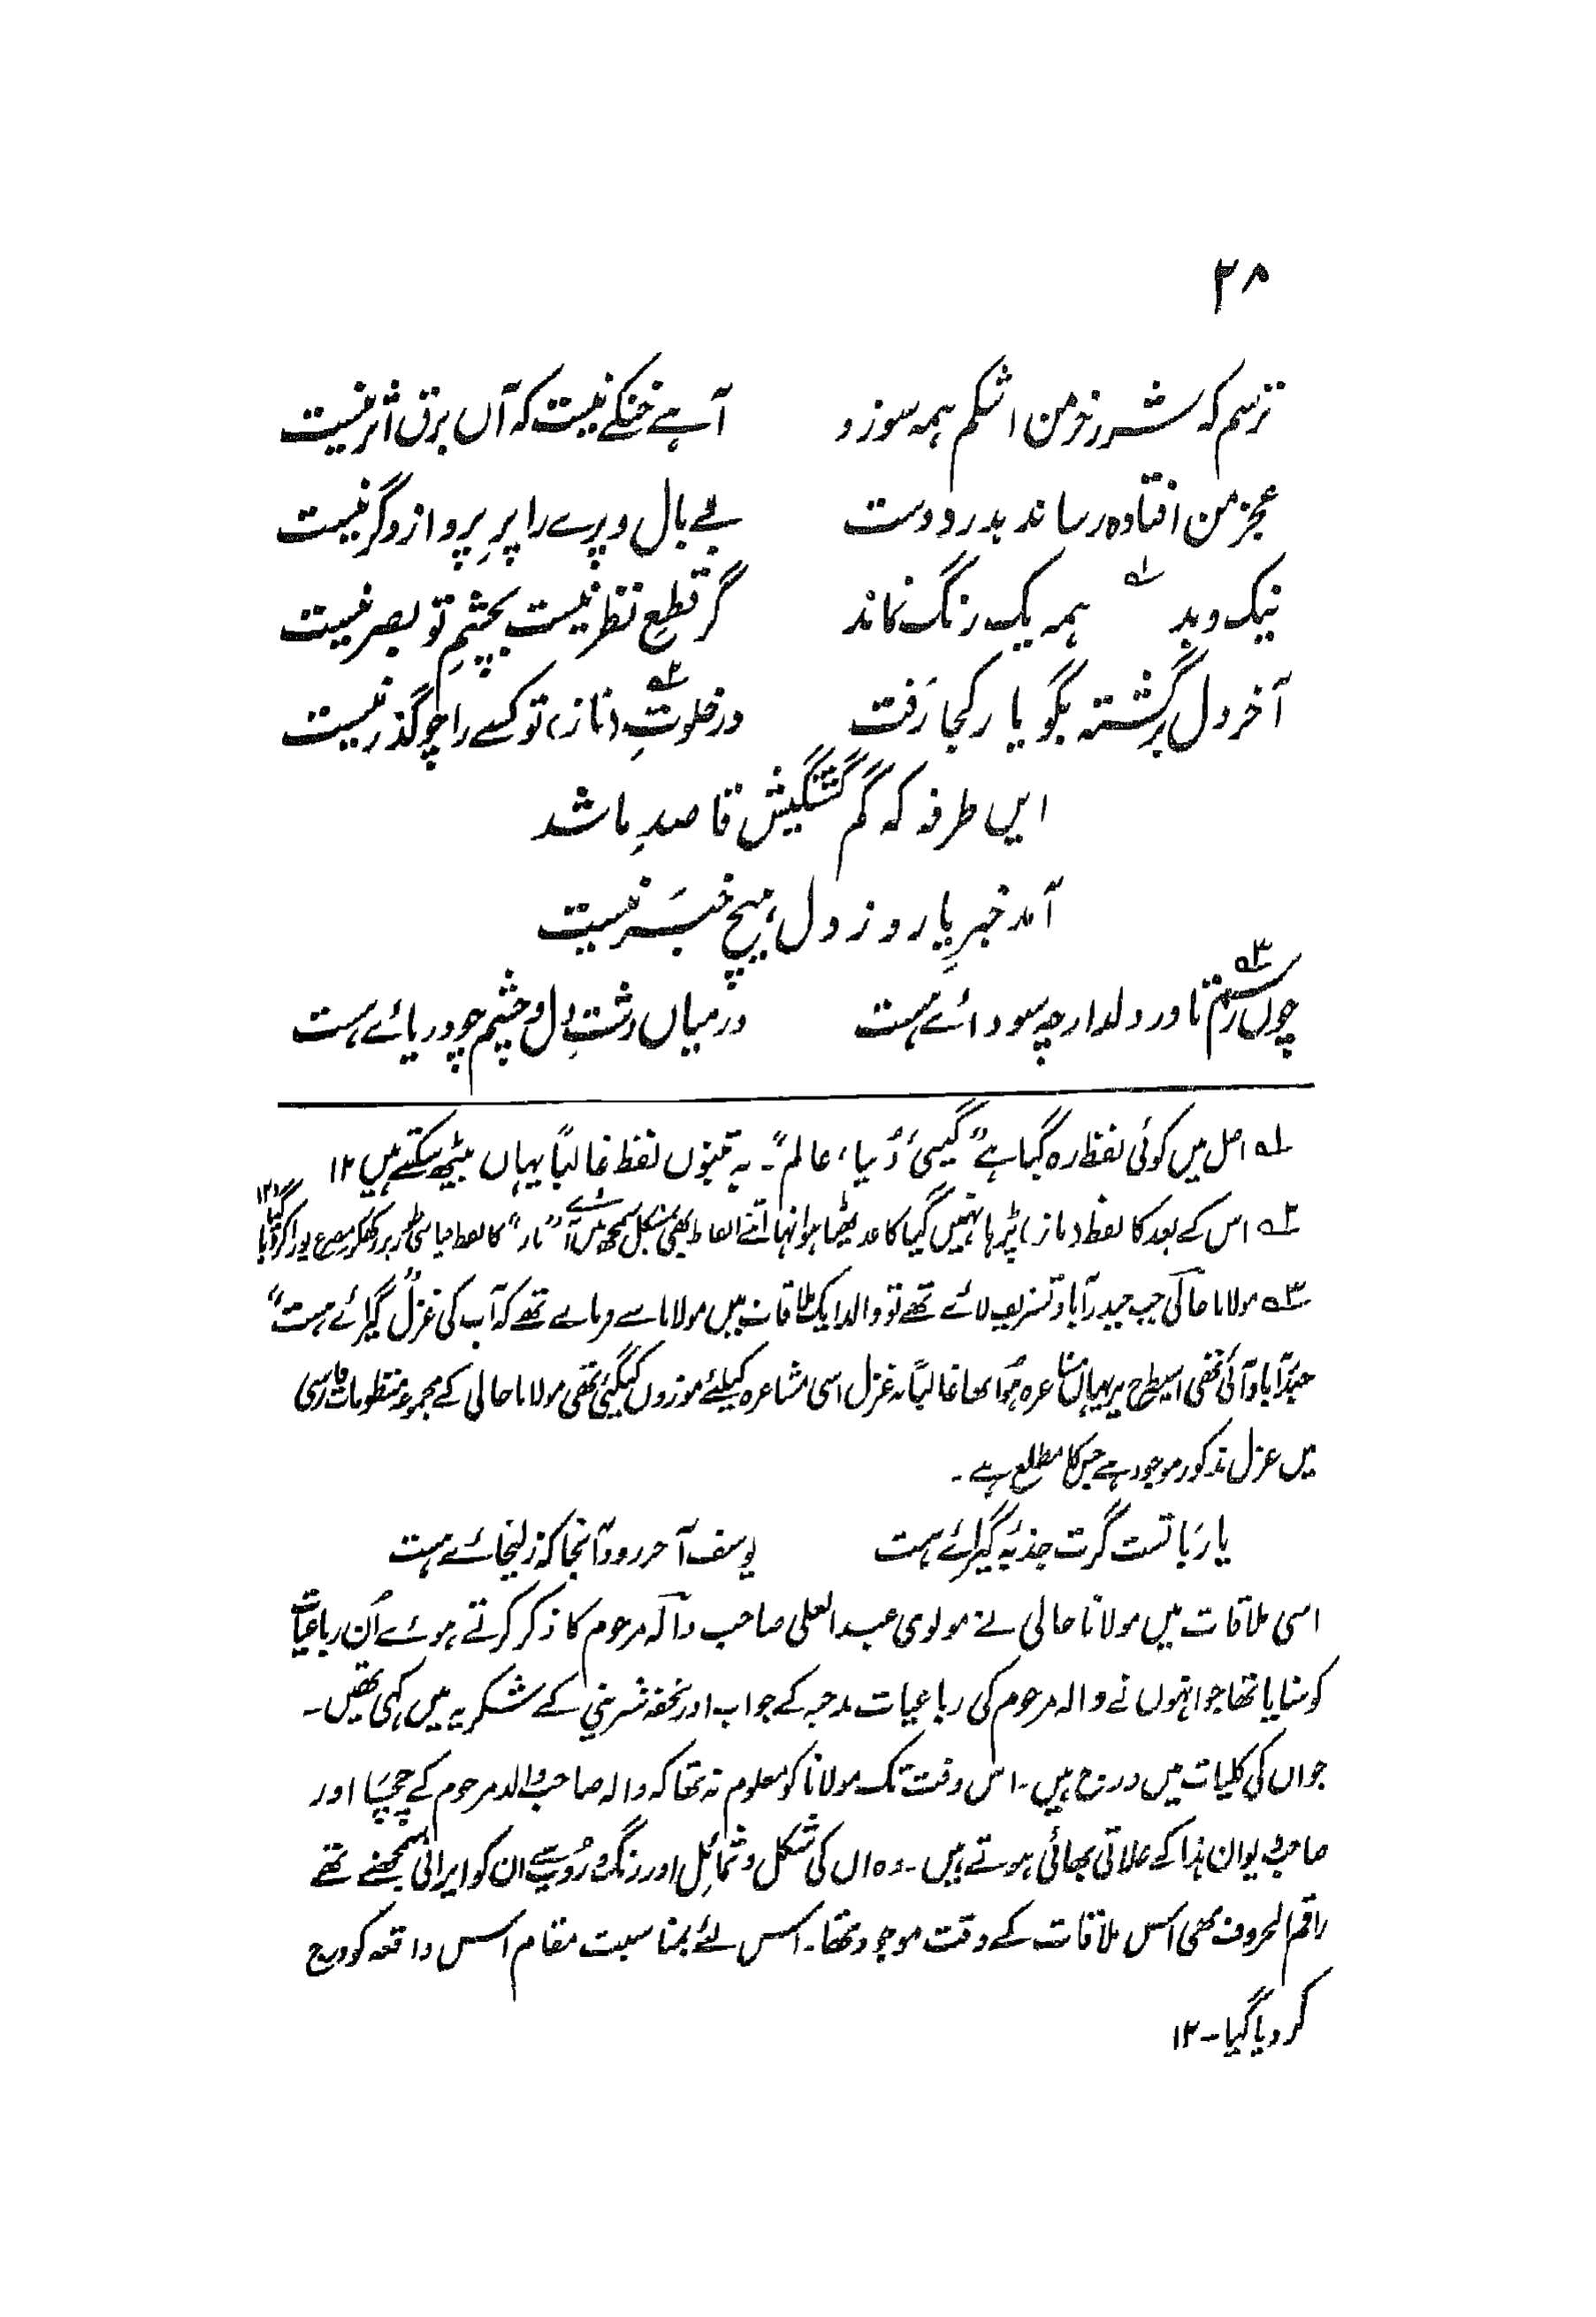 ۲۸
ترسم کہ شررِ خرمن اشکم ہمہ سوزد آہے خنکے نیست کہ آں برق اثر نیست
عجز من افتادہ رساند بدر دوست بے بال و پرے را پرِ پرواز دگر نیست
نیک و بد ۱ ہمہ یک رنگ نماند گر قطعِ نظر نیست بچشمِ تو بصر نیست
آخر دل برگشتہ بگو یار کجا رَفت در خلوتِ (ناز) تو ۲ کسے را چو گذر نیست
ایں طرفہ کہ گم گشتگیش قاصدِ ما شد
آمد خبرِ یار و ز دل ہیچ خبَر نیست
چوں رسم تا در دلدار چہ سودائے ہست ۳ درمیاں دشتِ دل و چشم چو دریائے ہست
۱ اصل میں کوئی لفظ رہ گیا ہے "گیتی، دُنیا، عالم"۔ یہ تینوں لفظ غالباً یہاں بیٹھ سکتے ہیں ۱۲
۲ اس کے بعد کا لفظ (ناز) پڑہا نہیں گیا کاغذ پھٹا ہوا تھا اتنے الفاظ بھی بمشکل سمجھ میں آئے "ناز" کا لفظ قیاسی طور پر رکھکر مصرع پورا کر دیا گیا ۱۲
۳ مولانا حالی جب حیدرآباد تشریف لائے تھے تو والد ایک ملاقات میں مولانا سے فرمائے تھے کہ آپ کی غزل "گیرائے ہست"
حیدرآباد آئی تھی اسیطرح پر یہاں مشاعرہ ہُوا تھا غالباً یہ غزل اسی مشاعرہ کیلئے موزوں کیگئی تھی مولانا حالی کے مجموعہ منظومات فارسی
میں غزل مذکور موجود ہے جس کا مطلع ہے ۔
یار با تست گرت جذبۂ گیرائے ہست یوسف آخر رود آنجا کہ زلیخائے ہست
اسی ملاقات میں مولانا حالی نے مولوی عبد العلی صاحب والہ مرحوم کا ذکر کرتے ہوئے اُن رباعیات
کو سنایا تھا جو انہوں نے والہ مرحوم کی رباعیات مدحیہ کے جواب اور تحفہ شرینی کے شکریہ میں کہی تھیں۔
جو ان کی کلیات میں درج ہیں۔ اس وقت تک مولانا کو معلوم نہ تھا کہ والہ صاحب والد مرحوم کے چچا اور
صاحب دیوان ہذا کے علاتی بھائی ہوتے ہیں۔ وہ ان کی شکل و شمائِل اور رنگ و رُوپ سے ان کو ایرانی سمجھتے تھے
راقم الحروف بھی اس ملاقات کے وقت موجود تھا۔ اس لئے بمناسبت مقام اس واقعہ کو درج
کر دیا گیا۔ ۱۲